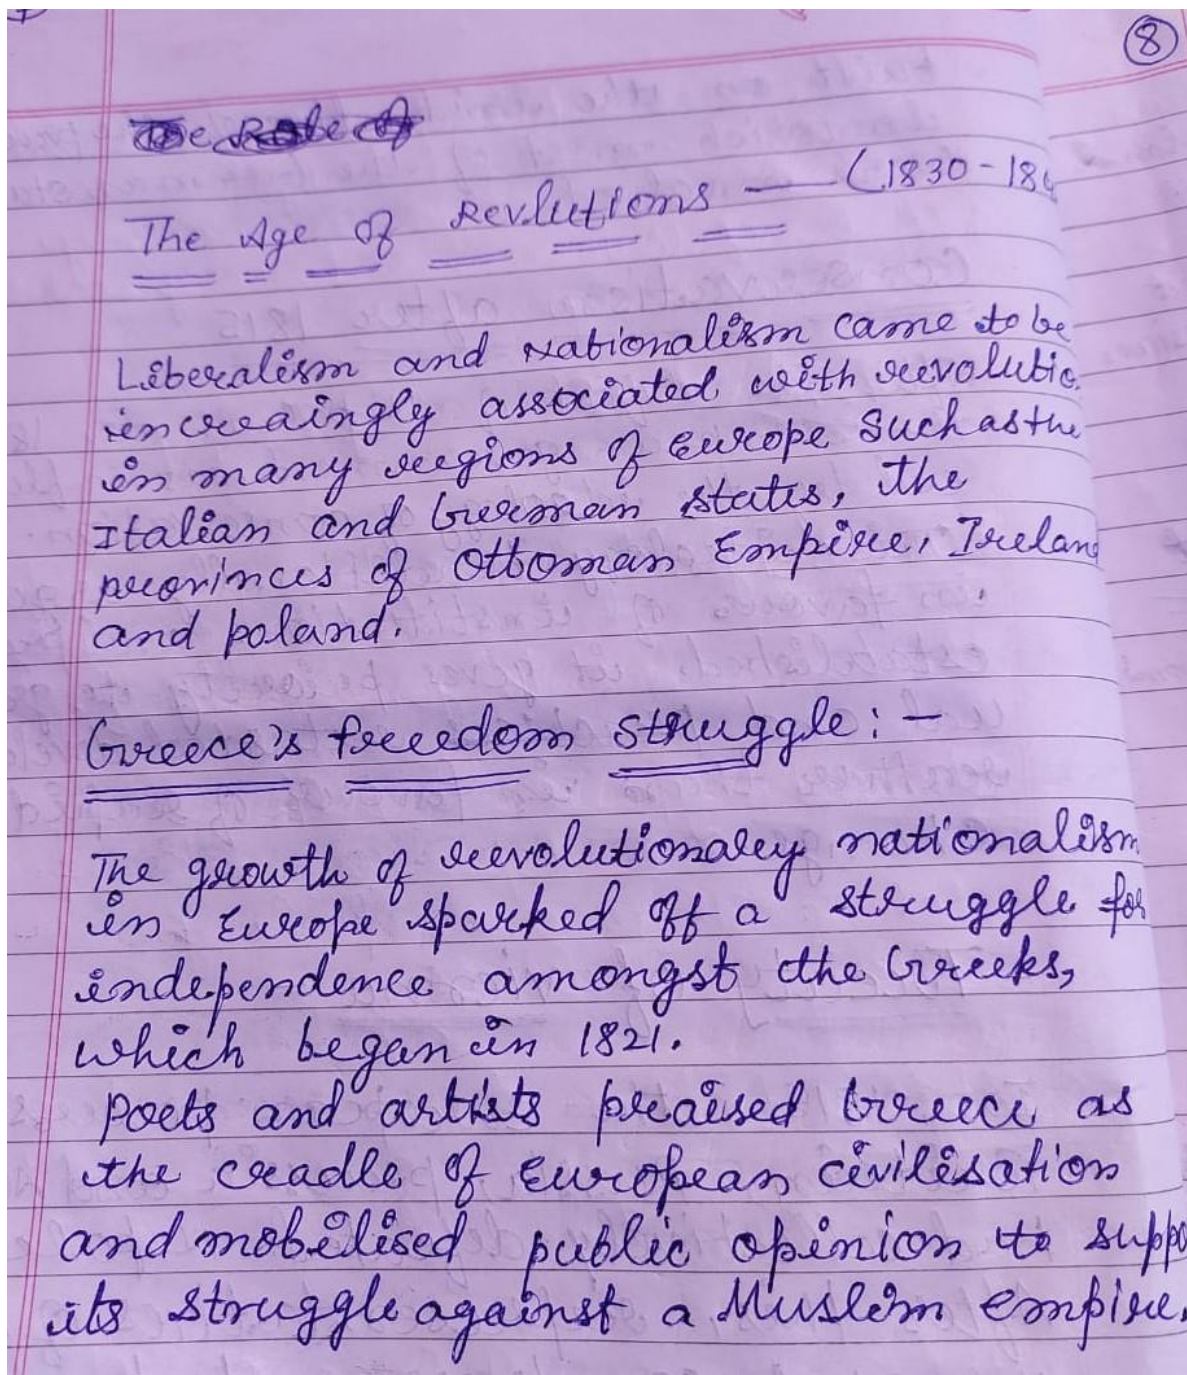 8
The Role of
The Age of Revlutions — (1830-18
Liberalism and Nationalism came to be
increaingly associated with revolutio
in many regions of Europe such as the
Italian and German states, the
provinces of Ottoman Empire, Irelan
and poland.
Greece's freedom struggle: -
The growth of revolutionary nationalism
in Europe sparked off a struggle for
independence amongst the Greeks,
which began in 1821.
Poets and artists praised Greece as
the cradle of European civilisation
and mobilised public opinion to suppo
its struggle against a Muslim empire.